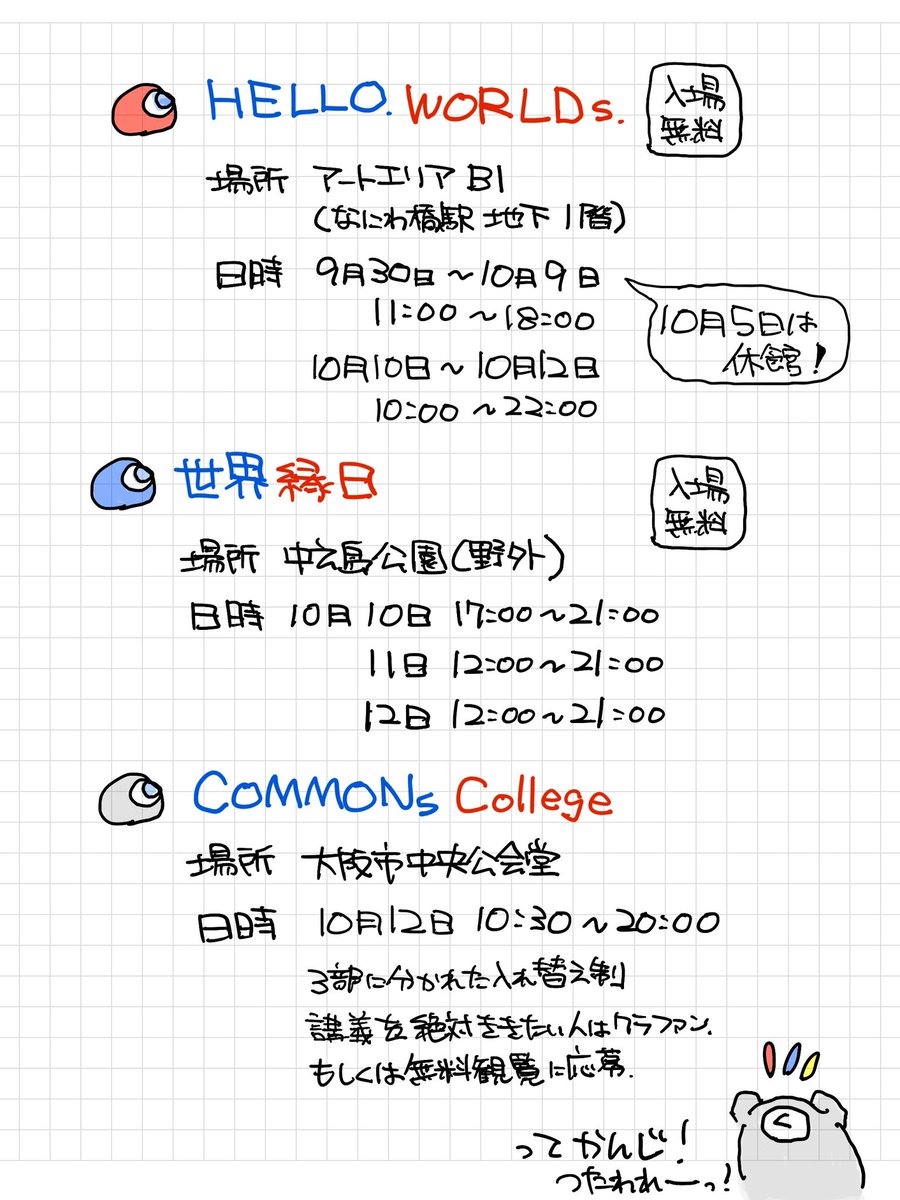 HELLO. WORLDs.
入場
無料
場所 アートエリア B1
(なにわ橋駅 地下1階)
日時 9月30日〜10月9日
11:00〜18:00
10月5日は
休館!
10月10日〜10月12日
10:00〜22:00
世界縁日
入場
無料
場所 中之島公園(野外)
日時 10月10日 17:00〜21:00
11日 12:00〜21:00
12日 12:00〜21:00
COMMONs College
場所 大阪市中央公会堂
日時 10月12日 10:30〜20:00
3部に分かれた入れ替え制
講義を絶対ききたい人はクラファン.
もしくは無料観覧に応募.
ってかんじ!
つたわれーっ!